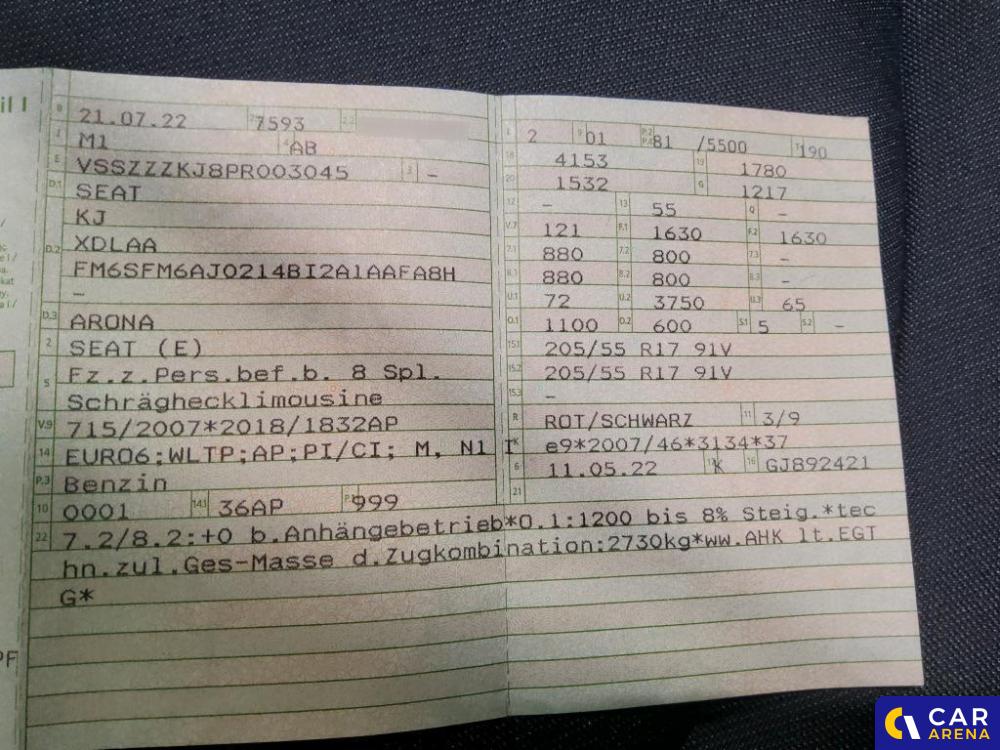 il I
B 21.07.22 2.1 7593 2.2
J M1 4 AB
E VSSZZZKJ8PR003045 3 –
D.1 SEAT
KJ
D.2 XDLAA
FM6SFM6AJ0214BI2A1AAFA8H
–
D.3 ARONA
2 SEAT (E)
5 Fz.z.Pers.bef.b. 8 Spl.
Schräghecklimousine
V.9 715/2007*2018/1832AP
14 EURO6;WLTP;AP;PI/CI; M, N1 I
P.3 Benzin
10 0001 14.1 36AP P.1 999
L 2 9 01 P.2 P.4 81 /5500 T 190
18 4153 19 1780
20 1532 G 1217
12 – 13 55 Q –
V.7 121 F.1 1630 F.2 1630
7.1 880 7.2 800 7.3 –
8.1 880 8.2 800 8.3 –
U.1 72 U.2 3750 U.3 65
O.1 1100 O.2 600 S.1 5 S.2 –
15.1 205/55 R17 91V
15.2 205/55 R17 91V
15.3 –
R ROT/SCHWARZ 11 3/9
K e9*2007/46*3134*37
6 11.05.22 17 K 16 GJ892421
21
22 7.2/8.2:+0 b.Anhängebetrieb*O.1:1200 bis 8% Steig.*tec
hn.zul.Ges-Masse d.Zugkombination:2730kg*ww.AHK lt.EGT
G*
PF
CAR
ARENA